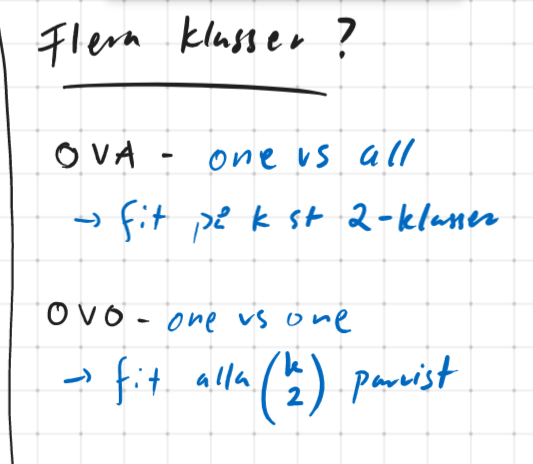 Flera klasser?
OVA - one vs all
→ fit på k st 2-klasser
OVO - one vs one
→ fit alla (k 2) parvist